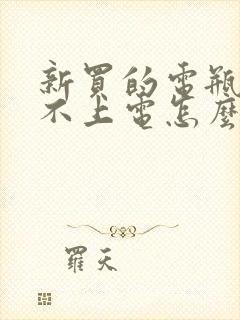 新買的電瓶
不上電怎麼
羅天